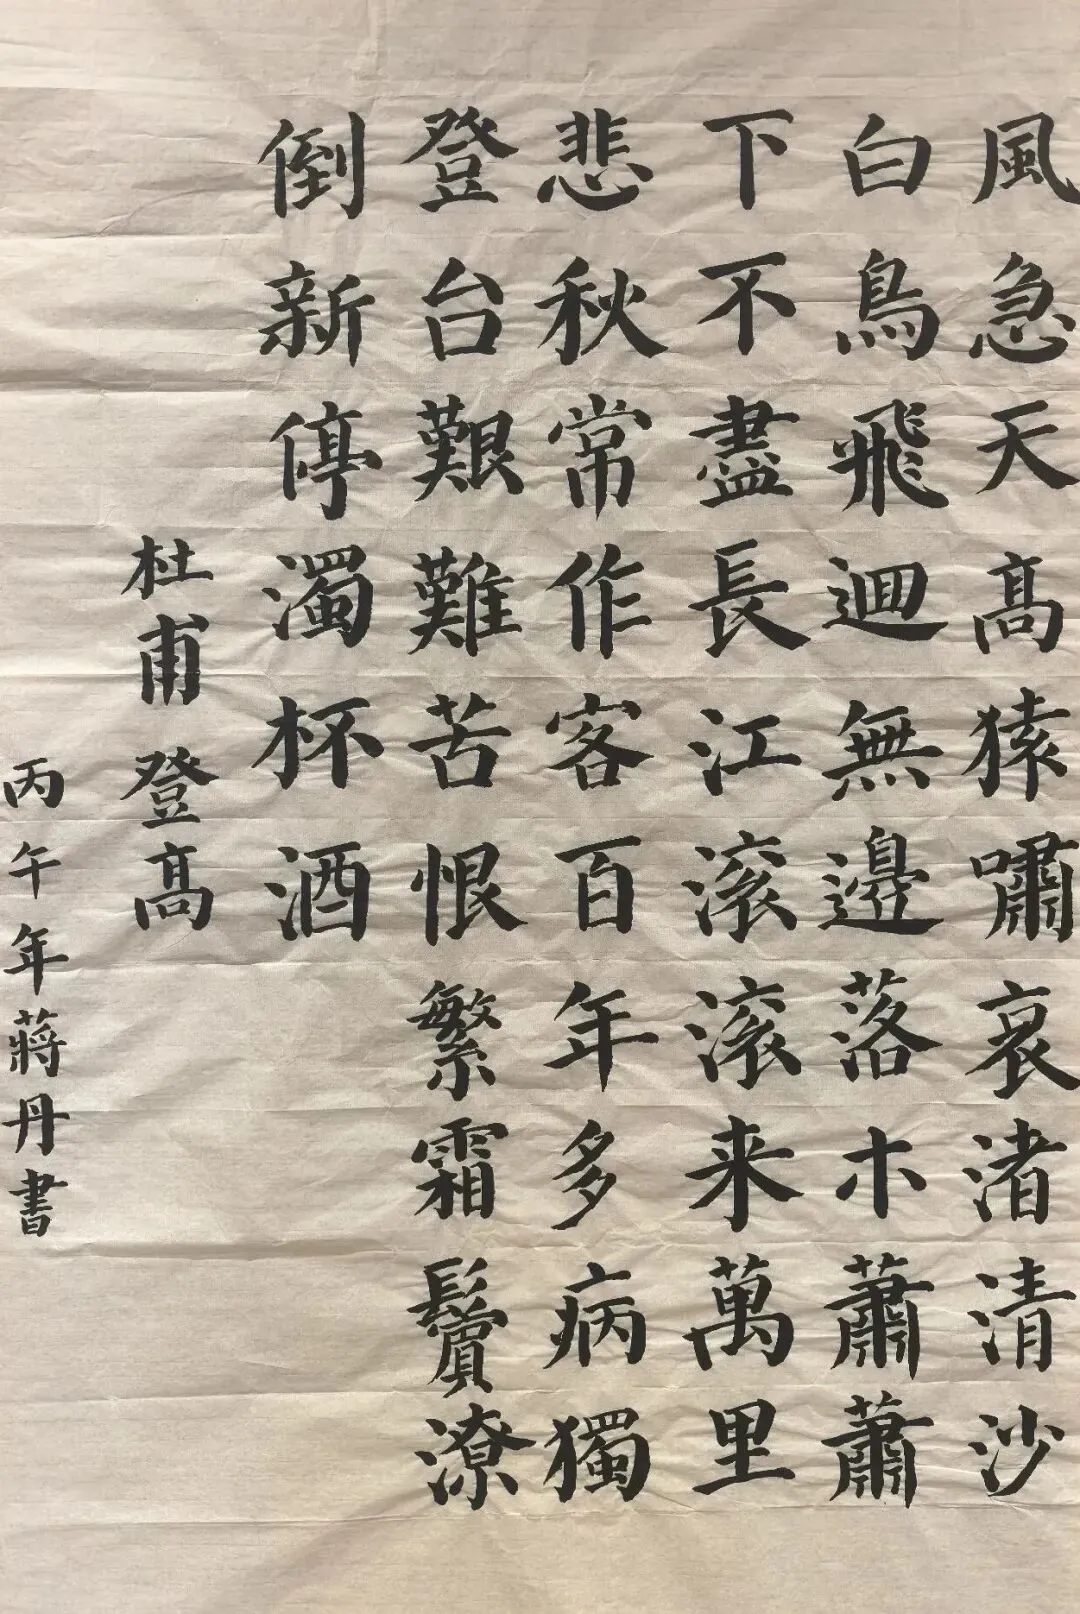 風急天高猿嘯哀渚清沙
白鳥飛迴無邊落木蕭蕭
下不盡長江滚滚来萬里
悲秋常作客百年多病獨
登台艱難苦恨繁霜鬢潦
倒新停濁杯酒
杜甫登高
丙午年蔣丹書